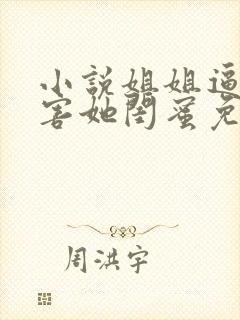 小說姐姐逼
害她閨蜜免
周洪宇